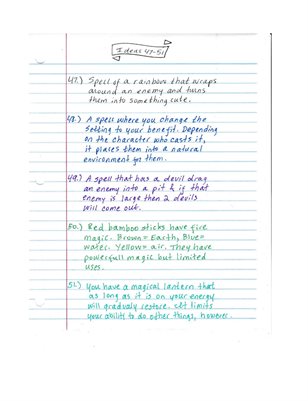 Ideas 47-51
47.) Spell of a rainbow that wraps
around an enemy and turns
them into something cute.
48.) A spell where you change the
setting to your benefit. Depending
on the character who casts it,
it places them into a natural
environment for them.
49.) A spell that has a devil drag
an enemy into a pit & if that
enemy is large then 2 devils
will come out.
50.) Red bamboo sticks have fire
magic. Brown = Earth, Blue =
water. Yellow = air. They have
powerfull magic but limited
uses.
51.) You have a magical lantern that
as long as it is on your energy
will gradualy restore. It limits
your ability to do other things, however.